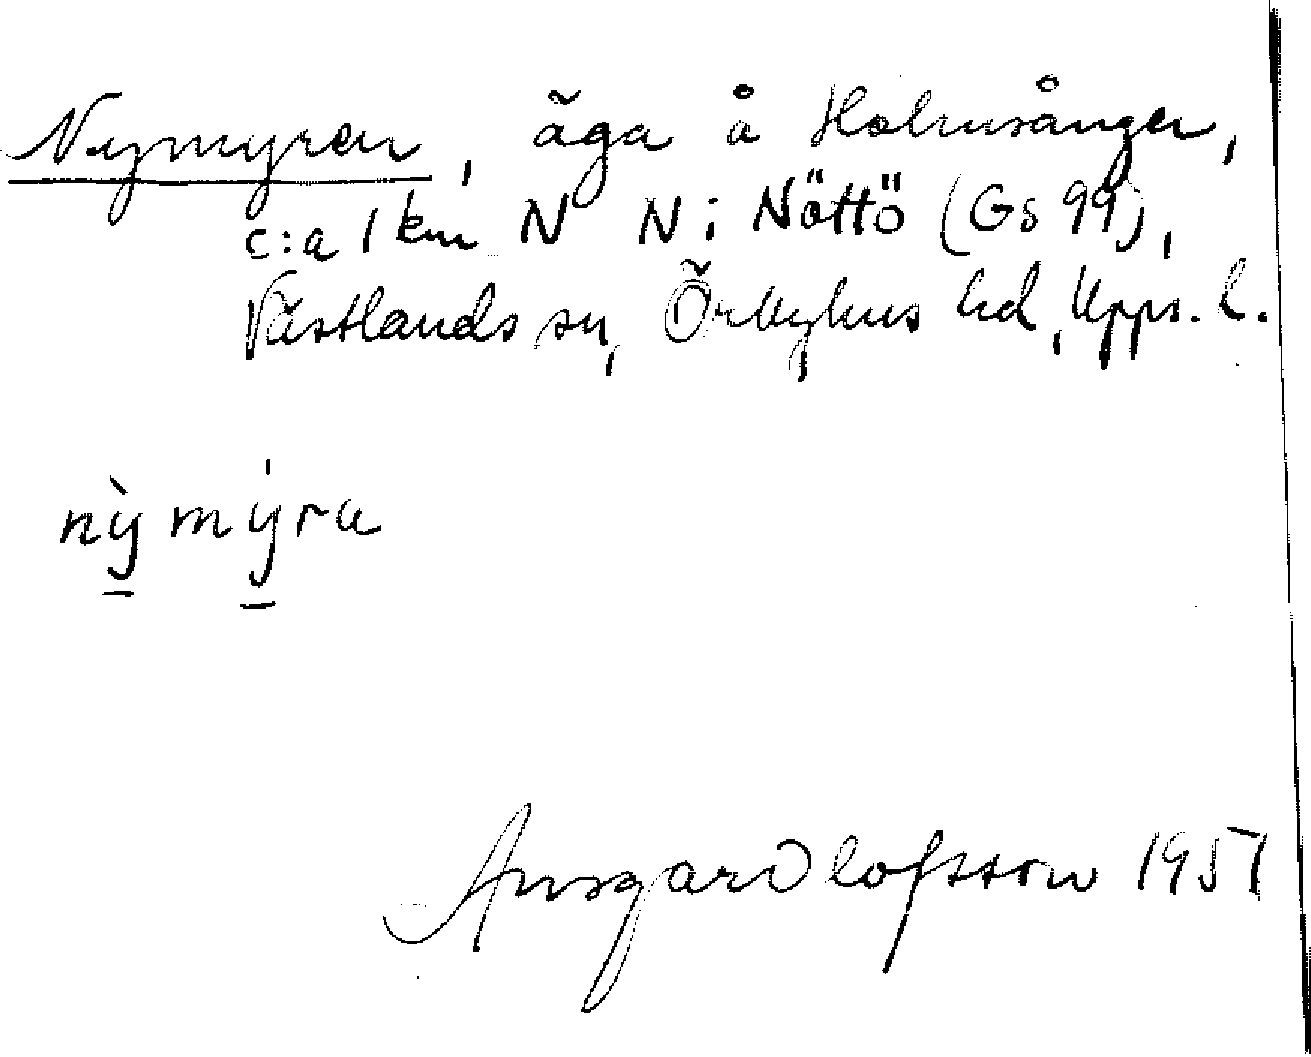 Nymyren, äga å Holmsånger,
c:a 1 km N N i Nöttö (Gs 99),
Västlands sn, Örbyhus hd, Upps. l.
nỳmýra
Ansgar Olofsson 1951